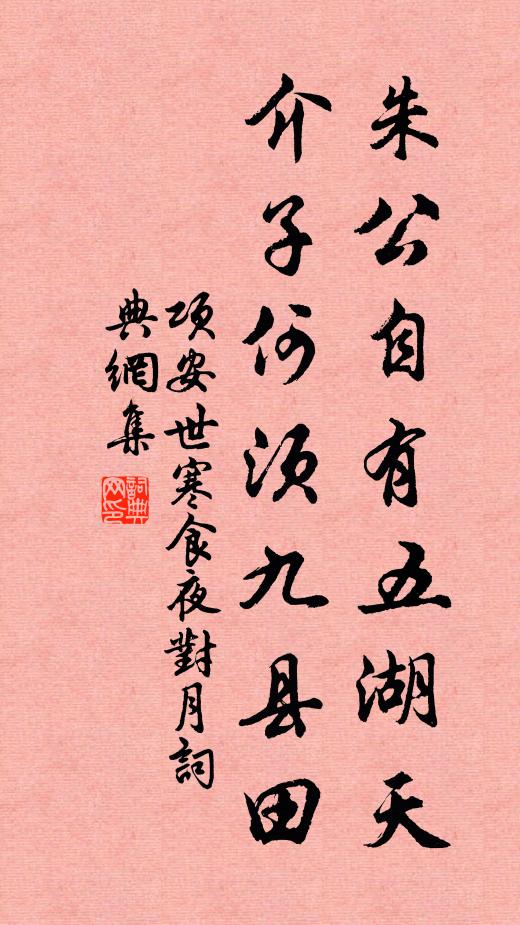 朱公自有五湖天
介子何须九县田
项安世寒食夜對月詞
典網集
詞典網印